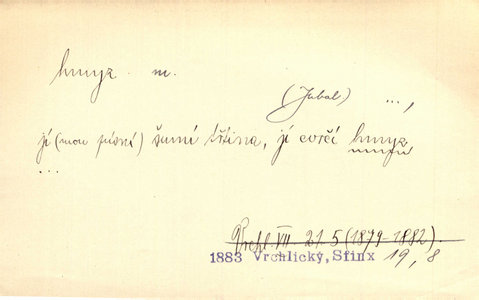 hmyz m.
(Jubal) ...,
jí (mou písní) šumí třtina, jí cvrčí hmyz
...
Vrchl. VII. 21 5 (1879-1882).
1883 Vrchlický, Sfinx 19, 8